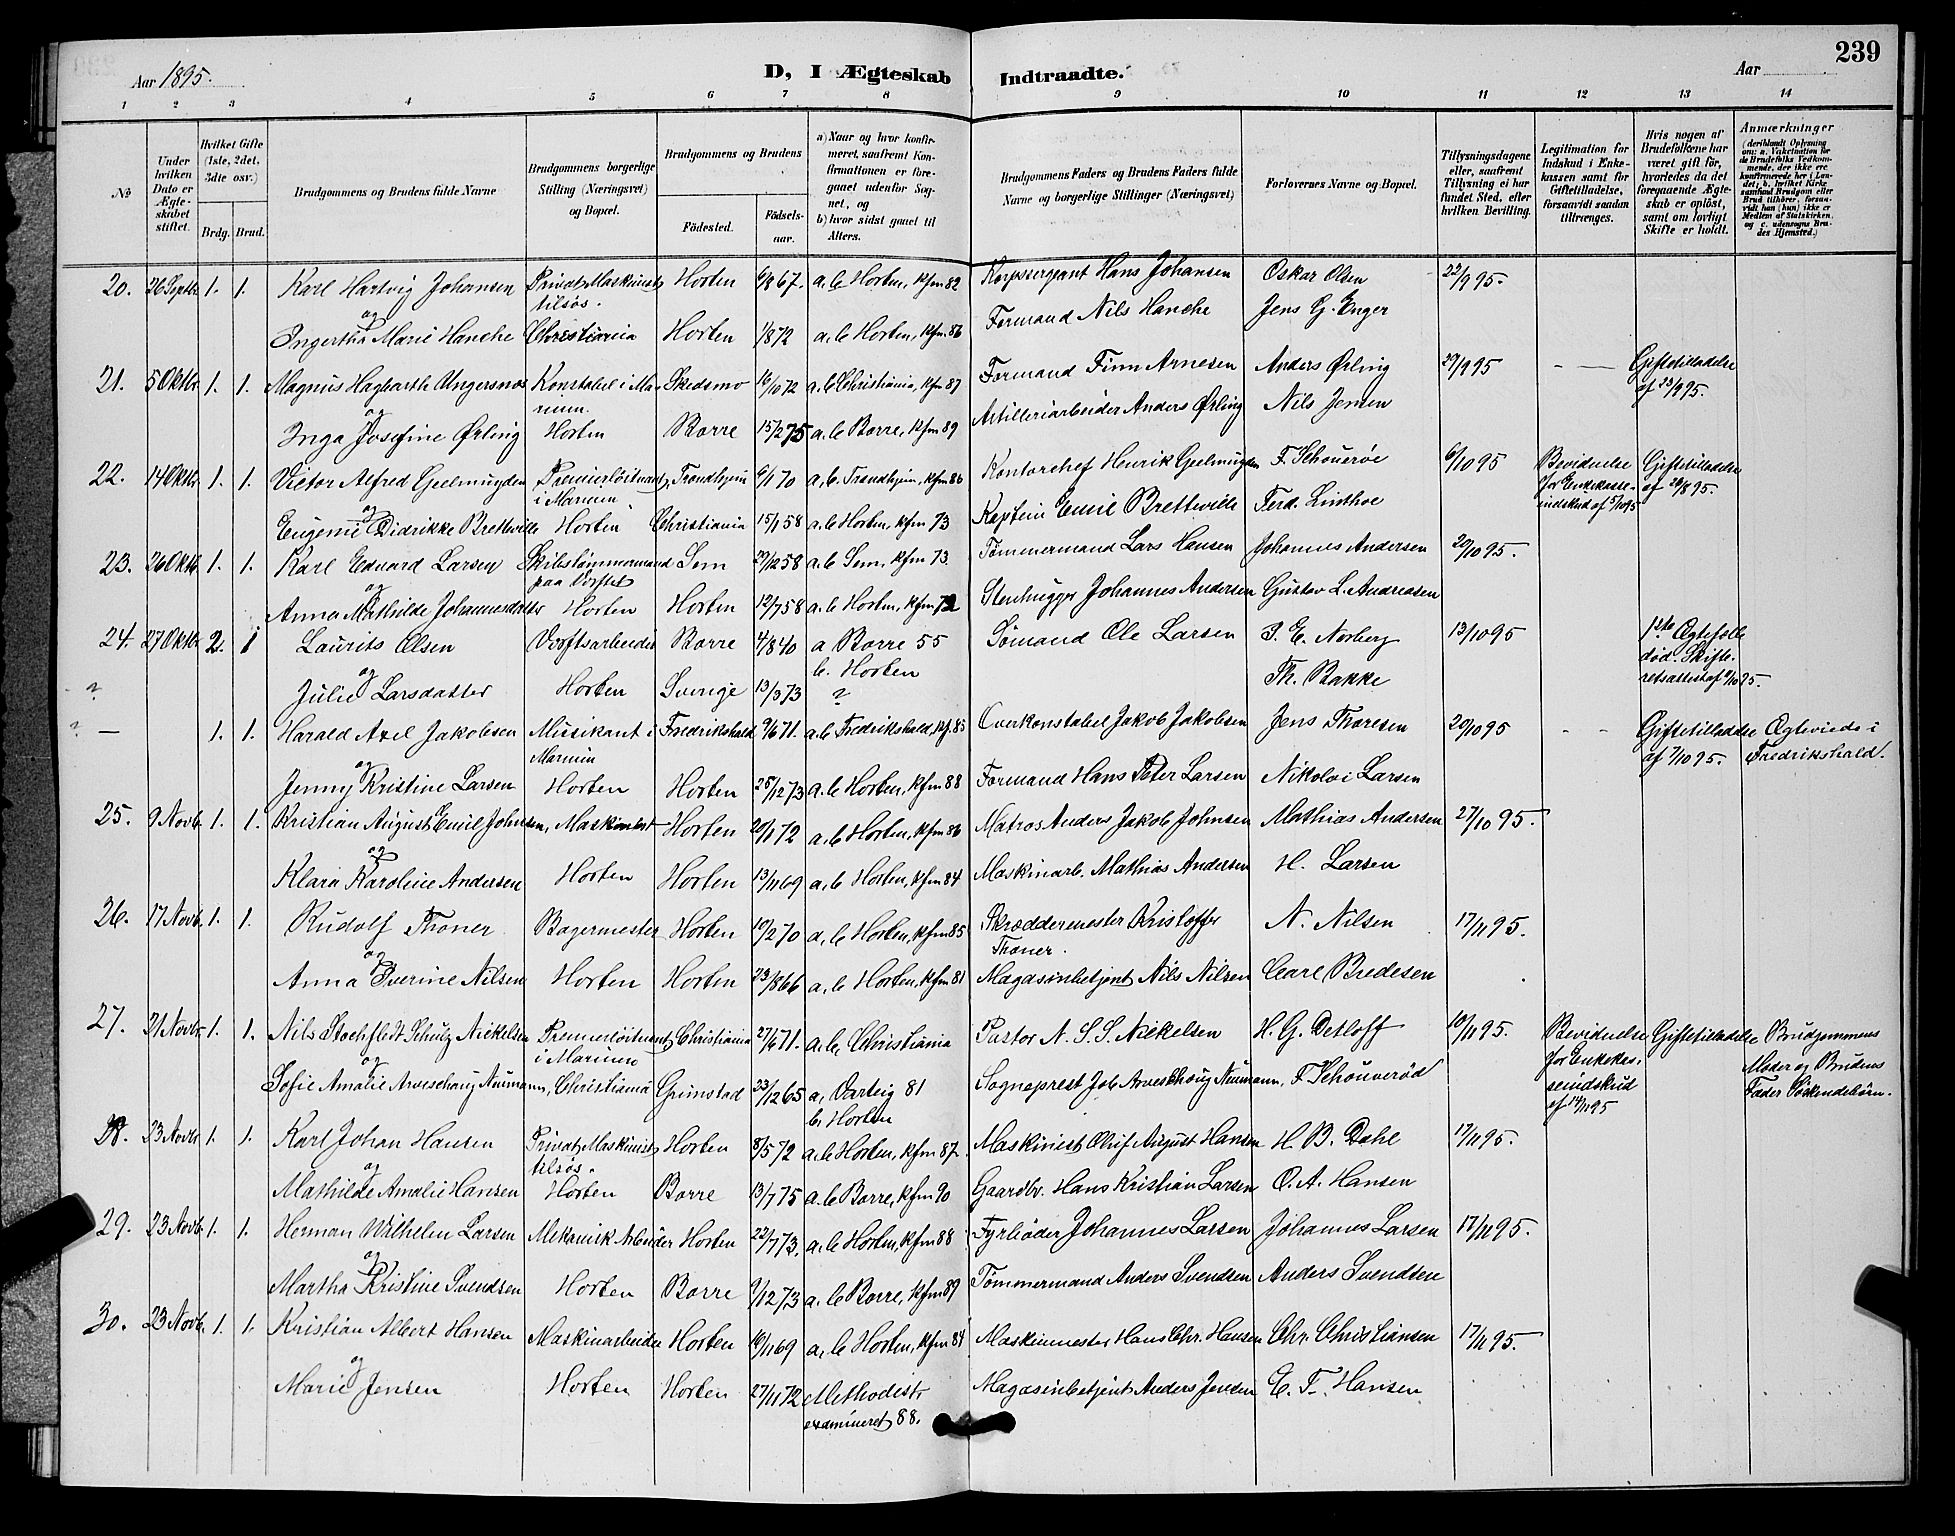 239
Aar 1895.
D, I Ægteskab Indtraadte.
Aar
1 2 3 4 5 6 7 8 9 10 11 12 13 14
№
Under hvilken Dato er Ægteskabet stiftet.
Hvilket Gifte (1ste, 2det, 3die osv.)
Brdg. Brud.
Brudgommens og Brudens fulde Navne
Brudgommens borgerlige Stilling (Næringsvei) og Bopæl.
Brudgommens og Brudens
Fødested. Fødselsaar.
a) Naar og hvor konfirmeret, saafremt Konfirmationen er foregaaet udenfor Sognet, og
b) hvor sidst gaaet til Alters.
Brudgommens Faders og Brudens Faders fulde Navne og borgerlige Stillinger (Næringsvei)
Forlovernes Navne og Bopæl.
Tillysningsdagene eller, saafremt Tillysning ei har fundet Sted, efter hvilken Bevilling.
Legitimation for Indskud i Enkekassen samt for Giftetilladelse, forsaavidt saadan tiltrænges.
Hvis nogen af Brudefolkene har været gift før, hvorledes da det foregaaende Ægteskab er opløst, samt om lovligt Skifte er holdt.
Anmærkninger (deriblandt Oplysning om: a. Vaksination for de Brudefolks Vedkommende, der ikke ere konfirmerede her i Landet; b. hvilket Kirkesamfund Brudgom eller Brud tilhører, forsaavidt han (hun) ikke er Medlem af Statskirken, og c. udensogns Brudes Hjemsted.)
20. 26 Septbr. 1. 1. Karl Hartvig Johansen Privat Maskinist tilsøs. Horten 6/8 67. a. b Horten, kfm 82 Korpssergeant Hans Johansen Oskar Olsen 22/9 95.
og
Ingertha Marie Hanche Christiania Horten 1/8 72 a. b Horten, kfm 86 Formand Nils Hanche Jens G. Enger
21. 5 Oktbr. 1. 1. Magnus Hagbarth Ungersnæs Konstabel i Marinen. Skedsmo 16/10 72 a. b Christiania, kfm 87 Formand Finn Arnesen Anders Ørling 29/9 95 - — Giftetilladelse af 23/9 95.
og
Inga Josefine Ørling Horten Borre 15/2 75 a. b Borre, kfm 89 Artilleriarbeider Anders Ørling Nils Jensen
22. 14 Oktbr. 1. 1. Victor Alfred Geelmuyden Premierløitnant i Marinen Trondhjem 6/1 70 a. b. Trondhjem, kfm 86 Kontorchef Henrik Geelmuyden F. Schouerøe 6/10 95 Bevidnelse for Enkekasseindskud af 5/10 95 Giftetilladelse af 29/8 95.
og
Eugenie Didrikke Brettville Horten Christiania 15/1 58 a. b Horten, kfm 73 Kaptein Emil Brettville Ferd. Linthoe
23. 26 Oktbr. 1. 1. Karl Edvard Larsen Skibstømmermand paa Værftet Sem 29/12 58 a. b Sem, kfm 73. Tømmermand Lars Hansen Johannes Andersen 20/10 95.
og
Anna Mathilde Johannesdatter Horten Horten 12/7 58 a. b Horten, kfm 72 Stenhugger Johannes Andersen Gustav L. Andreasen
24. 27 Oktbr 2. 1 Laurits Olsen Værftsarbeider Borre 4/8 40 a Borre 55 b. Horten Sømand Ole Larsen P. E. Norberg 13/10 95 1ste Ægtefælle død. Skifteretsattest af 9/10 95.
og
? Julie Larsdatter Horten Sverige 13/3 73 ? Th. Bakke
? — 1. 1. Harald Axel Jakobsen Musikant i Marinen Fredrikshald 9/6 71. a. b Fredrikshald, kf. 85 Overkonstabel Jakob Jakobsen Jens Thoresen 20/10 95 - - Giftetilladelse af 7/10 95. Ægteviede i Fredrikshald.
og
Jenny Kristine Larsen Horten Horten 25/12 73 a. b Horten, kfm 88 Formand Hans Peter Larsen Nikolai Larsen
25. 9 Novb. 1. 1. Kristian August Emil Johnsen, Maskinist Horten 20/1 72 a. b Horten, kfm 86 Matros Anders Jakob Johnsen Mathias Andersen 27/10 95.
og
Klara Karoline Andersen Horten Horten 13/11 69 a. b Horten, kfm 84 Maskinarb. Mathias Andersen H. Larsen
26. 17 Novb. 1. 1. Rudolf Thoner Bagermester Horten 10/2 70 a. b Horten, kfm 85 Skræddermester Kristoffer Thoner. N. Nilsen 17/11 95.
og
Anna Sverine Nilsen Horten Horten 23/8 66 a. b Horten, kfm 81 Magasinbetjent Nils Nilsen Carl Bredesen
27. 21 Novbr. 1. 1. Nils Stochfledt Schulz Nickelsen Premierløitnant i Marinen Christiania 27/6 71. a. b. Christiania Pastor N. S. S. Nickelsen H. G. Detloff 10/11 95. Bevidnelse for Enkekasseindskud af 14/11 95 Giftetilladelse Brudgommens Moder og Brudens Fader Søskendebørn.
og
Sofie Amalie Arveschoug Neumann, Christiania Grimstad 23/12 65 a, Varteig 81 b, Horten Sogneprest Job Arveschoug Neumann, F. Schouverød
28. 23 Novbr 1. 1. Karl Johan Hansen Privat Maskinist tilsøs. Horten 8/5 72 a. b Horten, kfm 87. Maskinist Oluf August Hansen H. B. Dahl 17/11 95.
og
Mathilde Amalie Hansen Horten Borre 13/7 75 a. b Borre, kfm 90 Gaardbr. Hans Kristian Larsen O. A. Hansen
29. 23 Novb. 1. 1. Herman Wilhelm Larsen Mekanisk Arbeider Horten 22/7 73. a. b Horten, kfm 88 Fyrbøder Johannes Larsen Johannes Larsen 17/11 95.
og
Martha Kristine Svendsen Horten Borre 9/12 73 a. b Borre, kfm 89 Tømmermand Anders Svendsen Anders Svendsen
30. 23 Novb. 1. 1. Kristian Albert Hansen Maskinarbeider Horten 16/11 69 a. b Horten, kfm 84 Maskinmester Hans Chr. Hansen Chr. Christiansen 17/11 95.
og
Marie Jensen Horten Horten 27/11 72 Methodist examineret 88. Magasinbetjent Anders Jensen E. F. Hansen